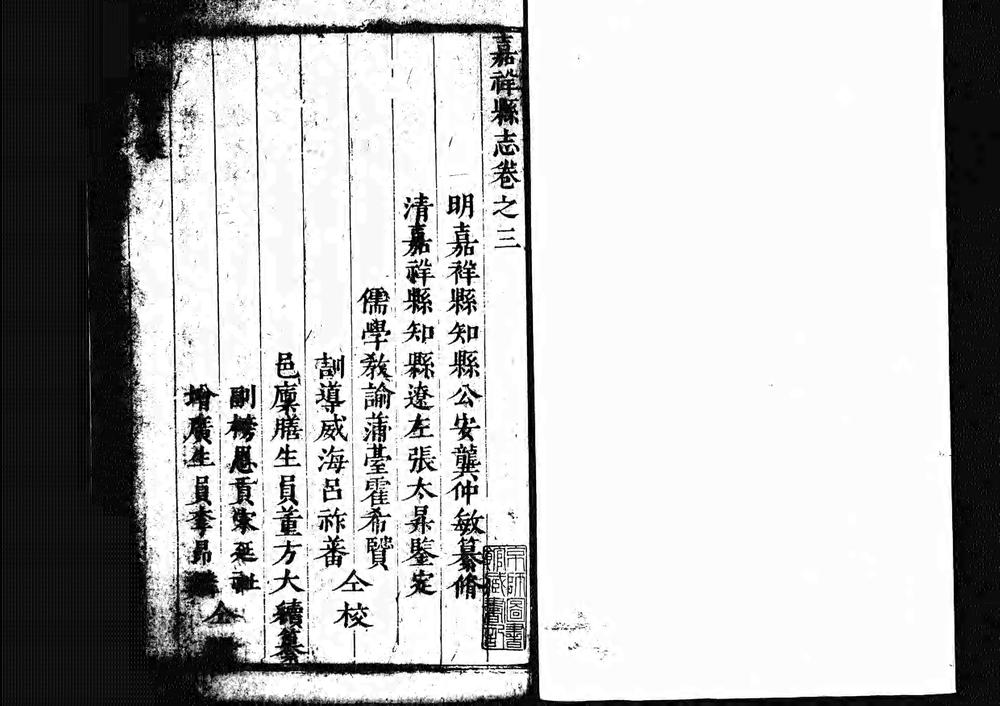 嘉祥縣志卷之三
明嘉祥縣知縣公安龔仲敏纂脩
清嘉祥縣知縣遼左張太昇鑒定
儒學敎諭蒲臺霍希賢
訓導威海呂祚蕃
仝校
邑廩膳生員董方大續纂
副榜恩貢宋延祉
增廣生員李昴
仝
京師圖書
館藏書記